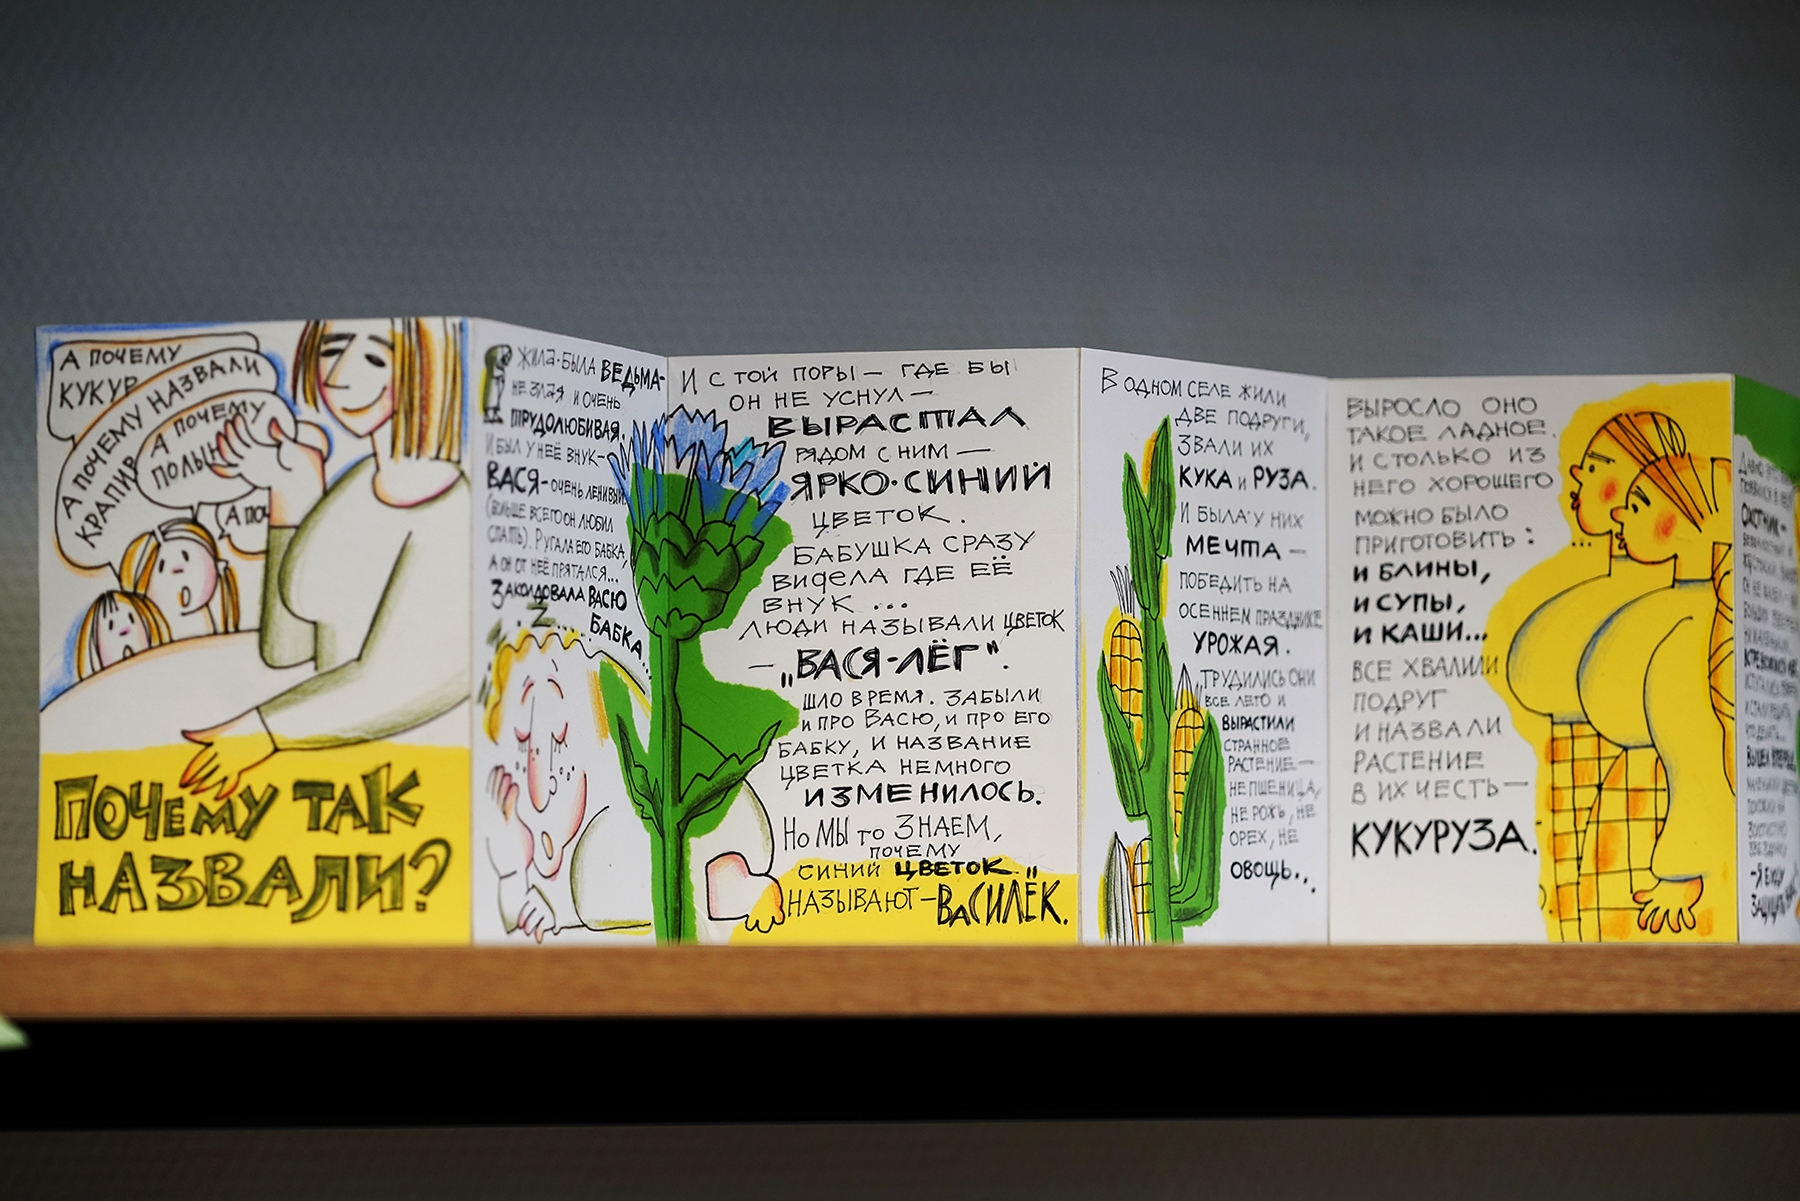 А ПОЧЕМУ
КУКУР
А ПОЧЕМУ НАЗВАЛИ
КРАПИВ
А ПОЧЕМУ
ПОЛЫН
А ПОЧ
ПОЧЕМУ ТАК
НАЗВАЛИ?
ЖИЛА-БЫЛА ВЕДЬМА-
НЕ ЗЛАЯ И ОЧЕНЬ
ТРУДОЛЮБИВАЯ.
И БЫЛ У НЕЁ ВНУК-
ВАСЯ- ОЧЕНЬ ЛЕНИВЫЙ
(БОЛЬШЕ ВСЕГО ОН ЛЮБИЛ
СПАТЬ). РУГАЛА ЕГО БАБКА,
А ОН ОТ НЕЁ ПРЯТАЛСЯ...
ЗАКОЛДОВАЛА ВАСЮ
БАБКА...
И С ТОЙ ПОРЫ — ГДЕ БЫ
ОН НЕ УСНУЛ —
ВЫРАСТАЛ
РЯДОМ С НИМ —
ЯРКО-СИНИЙ
ЦВЕТОК.
БАБУШКА СРАЗУ
ВИДЕЛА ГДЕ ЕЁ
ВНУК ...
ЛЮДИ НАЗЫВАЛИ ЦВЕТОК
— „ВАСЯ-ЛЁГ".
ШЛО ВРЕМЯ. ЗАБЫЛИ
И ПРО ВАСЮ, И ПРО ЕГО
БАБКУ, И НАЗВАНИЕ
ЦВЕТКА НЕМНОГО
ИЗМЕНИЛОСЬ.
НО МЫ ТО ЗНАЕМ,
ПОЧЕМУ
СИНИЙ ЦВЕТОК
НАЗЫВАЮТ — ВАСИЛЁК.
В ОДНОМ СЕЛЕ ЖИЛИ
ДВЕ ПОДРУГИ,
ЗВАЛИ ИХ
КУКА И РУЗА.
И БЫЛА У НИХ
МЕЧТА —
ПОБЕДИТЬ НА
ОСЕННЕМ ПРАЗДНИКЕ
УРОЖАЯ.
ТРУДИЛИСЬ ОНИ
ВСЕ ЛЕТО И
ВЫРАСТИЛИ
СТРАННОЕ
РАСТЕНИЕ —
НЕ ПШЕНИЦА,
НЕ РОЖЬ, НЕ
ОРЕХ, НЕ
ОВОЩЬ...
ВЫРОСЛО ОНО
ТАКОЕ ЛАДНОЕ.
И СТОЛЬКО ИЗ
НЕГО ХОРОШЕГО
МОЖНО БЫЛО
ПРИГОТОВИТЬ: ...
И БЛИНЫ,
И СУПЫ,
И КАШИ...
ВСЕ ХВАЛИЛИ
ПОДРУГ
И НАЗВАЛИ
РАСТЕНИЕ
В ИХ ЧЕСТЬ —
КУКУРУЗА.
ОХОТНИК —